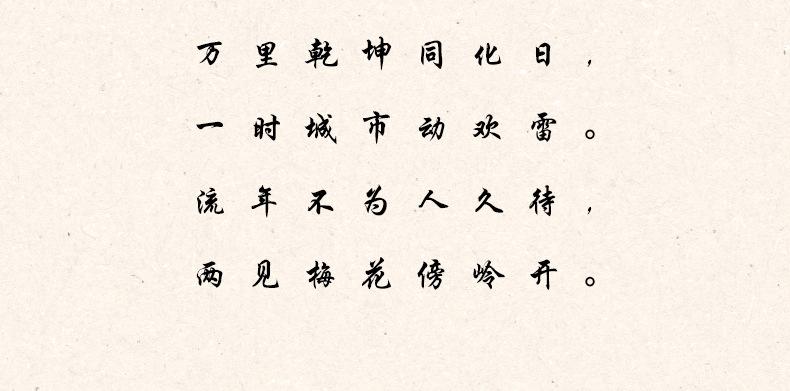 万里乾坤同化日，
一时城市动欢雷。
流年不为人久待，
两见梅花傍岭开。